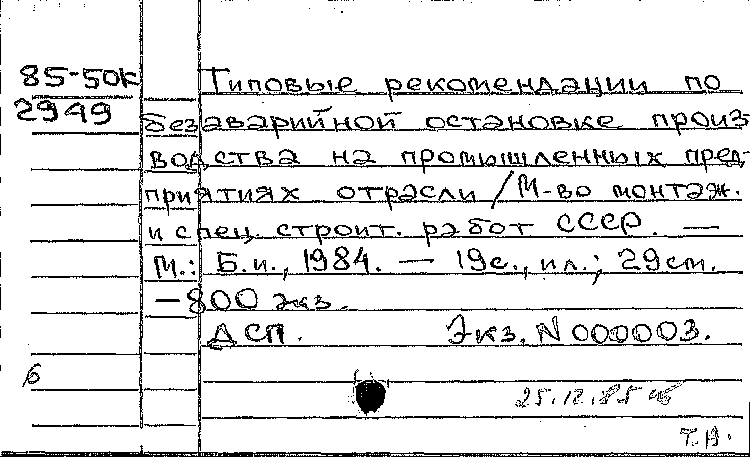 85-50к
2949
Типовые рекомендации по
безаварийной остановке произ
водства на промышленных пред-
приятиях отрасли / М-во монтаж.
и спец. строит. работ СССР. —
М.: Б.и., 1984. — 19с., ил.; 29см.
—800 экз.
ДСП. Экз. N 000003.
6
25.12.85
Т.В.